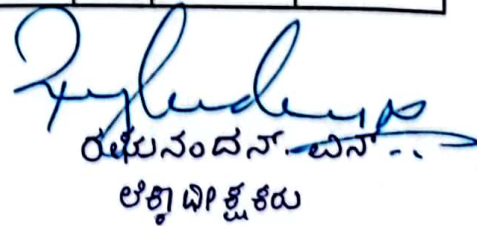 ರಘುನಂದನ್. ಎನ್..
ಲೆಕ್ಕ ವೀಕ್ಷಕರು